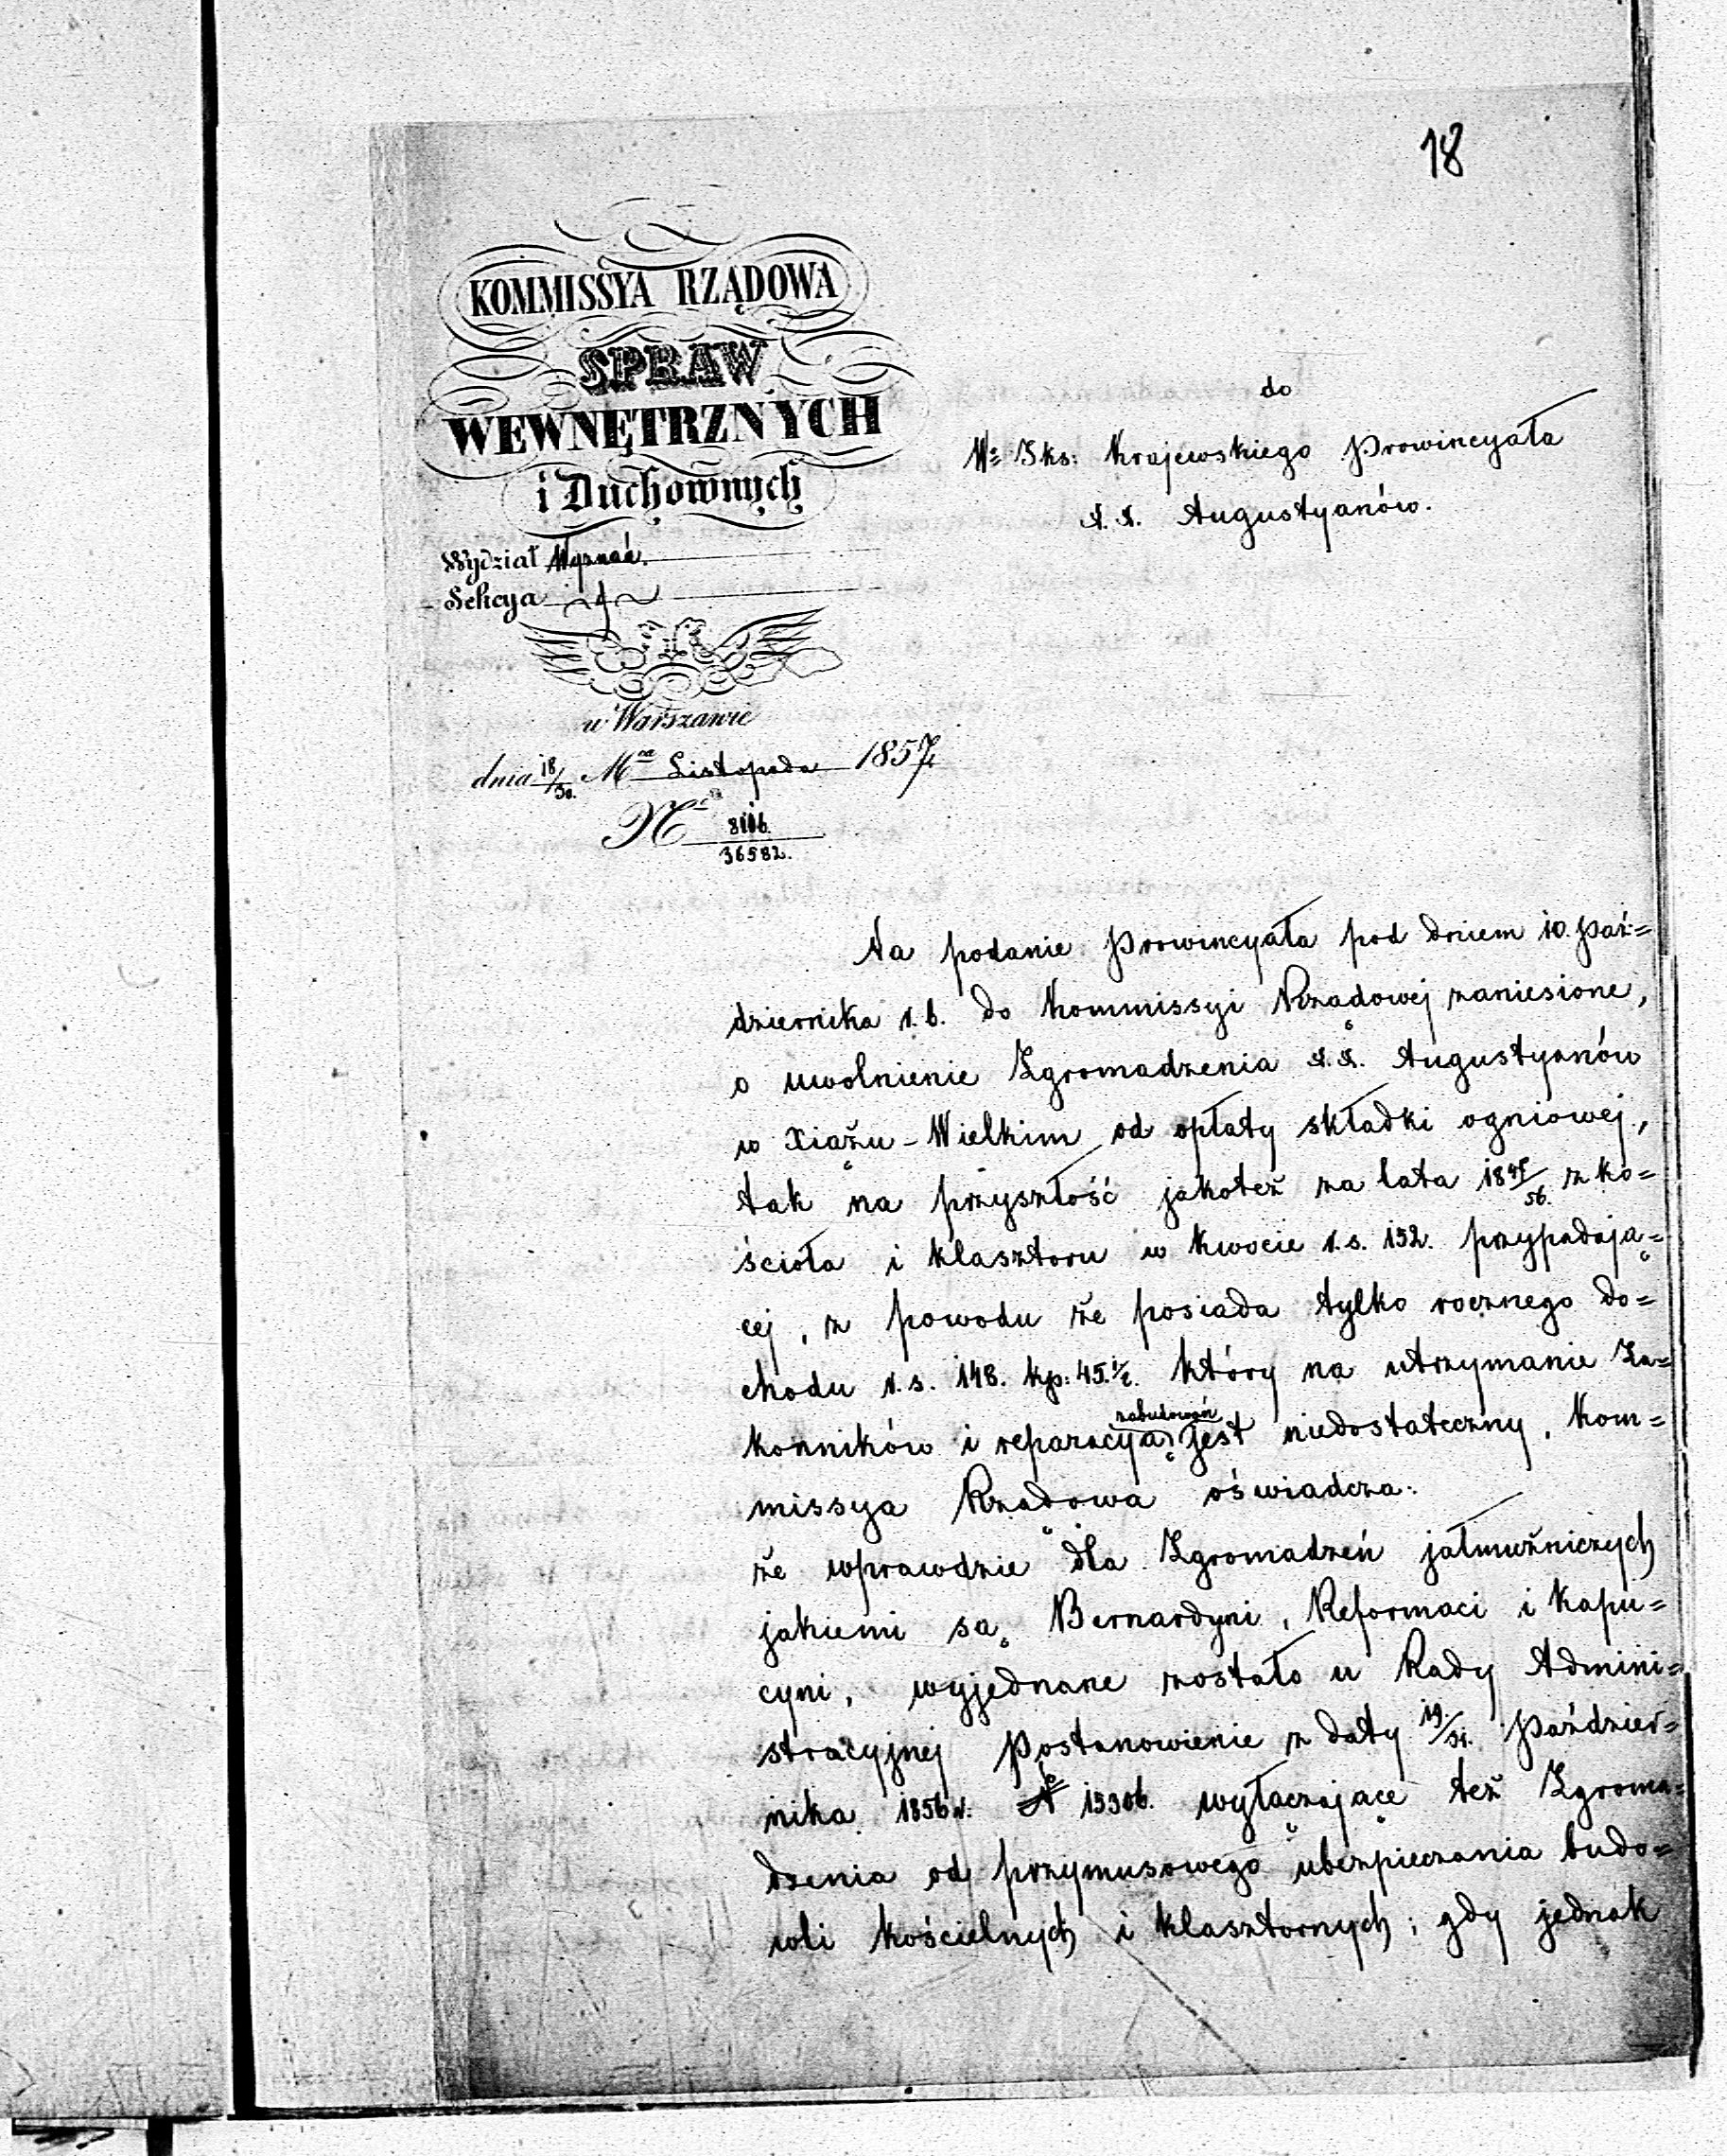 18
KOMMISSYA RZĄDOWA
SPRAW
WEWNĘTRZNYCH
i Duchownych
Wydział Wyznań.
Sekcya
w Warszawie
dnia 18/30. Mca Listopada 1857 r.
No 8106./36582.
do
W= Jks: Krajewskiego Prowincyała
X.X. Augustyanów.
Na podanie Prowincyała pod dniem 10. Paź=
dziernika r.b. do Kommissyi Rządowej zaniesione,
o uwolnienie Zgromadzenia X.X. Augustyanów
w Xiążu-Wielkim od opłaty składki ogniowej,
tak na przyszłość jakoteż za lata 18 /56. z ko=
ścioła i klasztoru w kwocie r.s. 152. przypadają=
cej, z powodu że posiada tylko rocznego do=
chodu r.s. 148. kp: 45.½. który na utrzymanie Za=
konników i reparacyą zabudowań jest niedostateczny, Kom=
missya Rządowa oświadcza:
że wprawdzie dla Zgromadzeń jałmużniczych
jakiemi są Bernardyni, Reformaci i Kapu=
cyni, wyjednane zostało u Rady Admini=
stracyjnej Postanowienie z daty 19/31. Paździer=
nika 1856 r. No 15306. wyłączające też Zgroma=
dzenia od przymusowego ubezpieczania budo=
wli kościelnych i klasztornych; gdy jednak